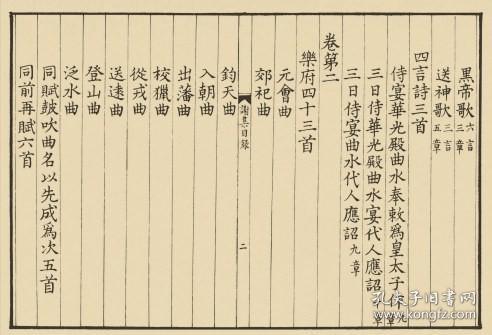 黑帝歌 六言三章
送神歌 三言五章
四言詩三首
侍宴華光殿曲水奉敕爲皇太子作 九章
三日侍華光殿曲水宴代人應詔 十章
三日侍宴曲水代人應詔 九章
卷第二
樂府四十三首
元會曲
郊祀曲
謝集目錄
二
鈞天曲
入朝曲
出藩曲
校獵曲
從戎曲
送遠曲
登山曲
泛水曲
同賦鼓吹曲名以先成爲次五首
同前再賦六首
孔夫子旧书网
www.kongfz.com